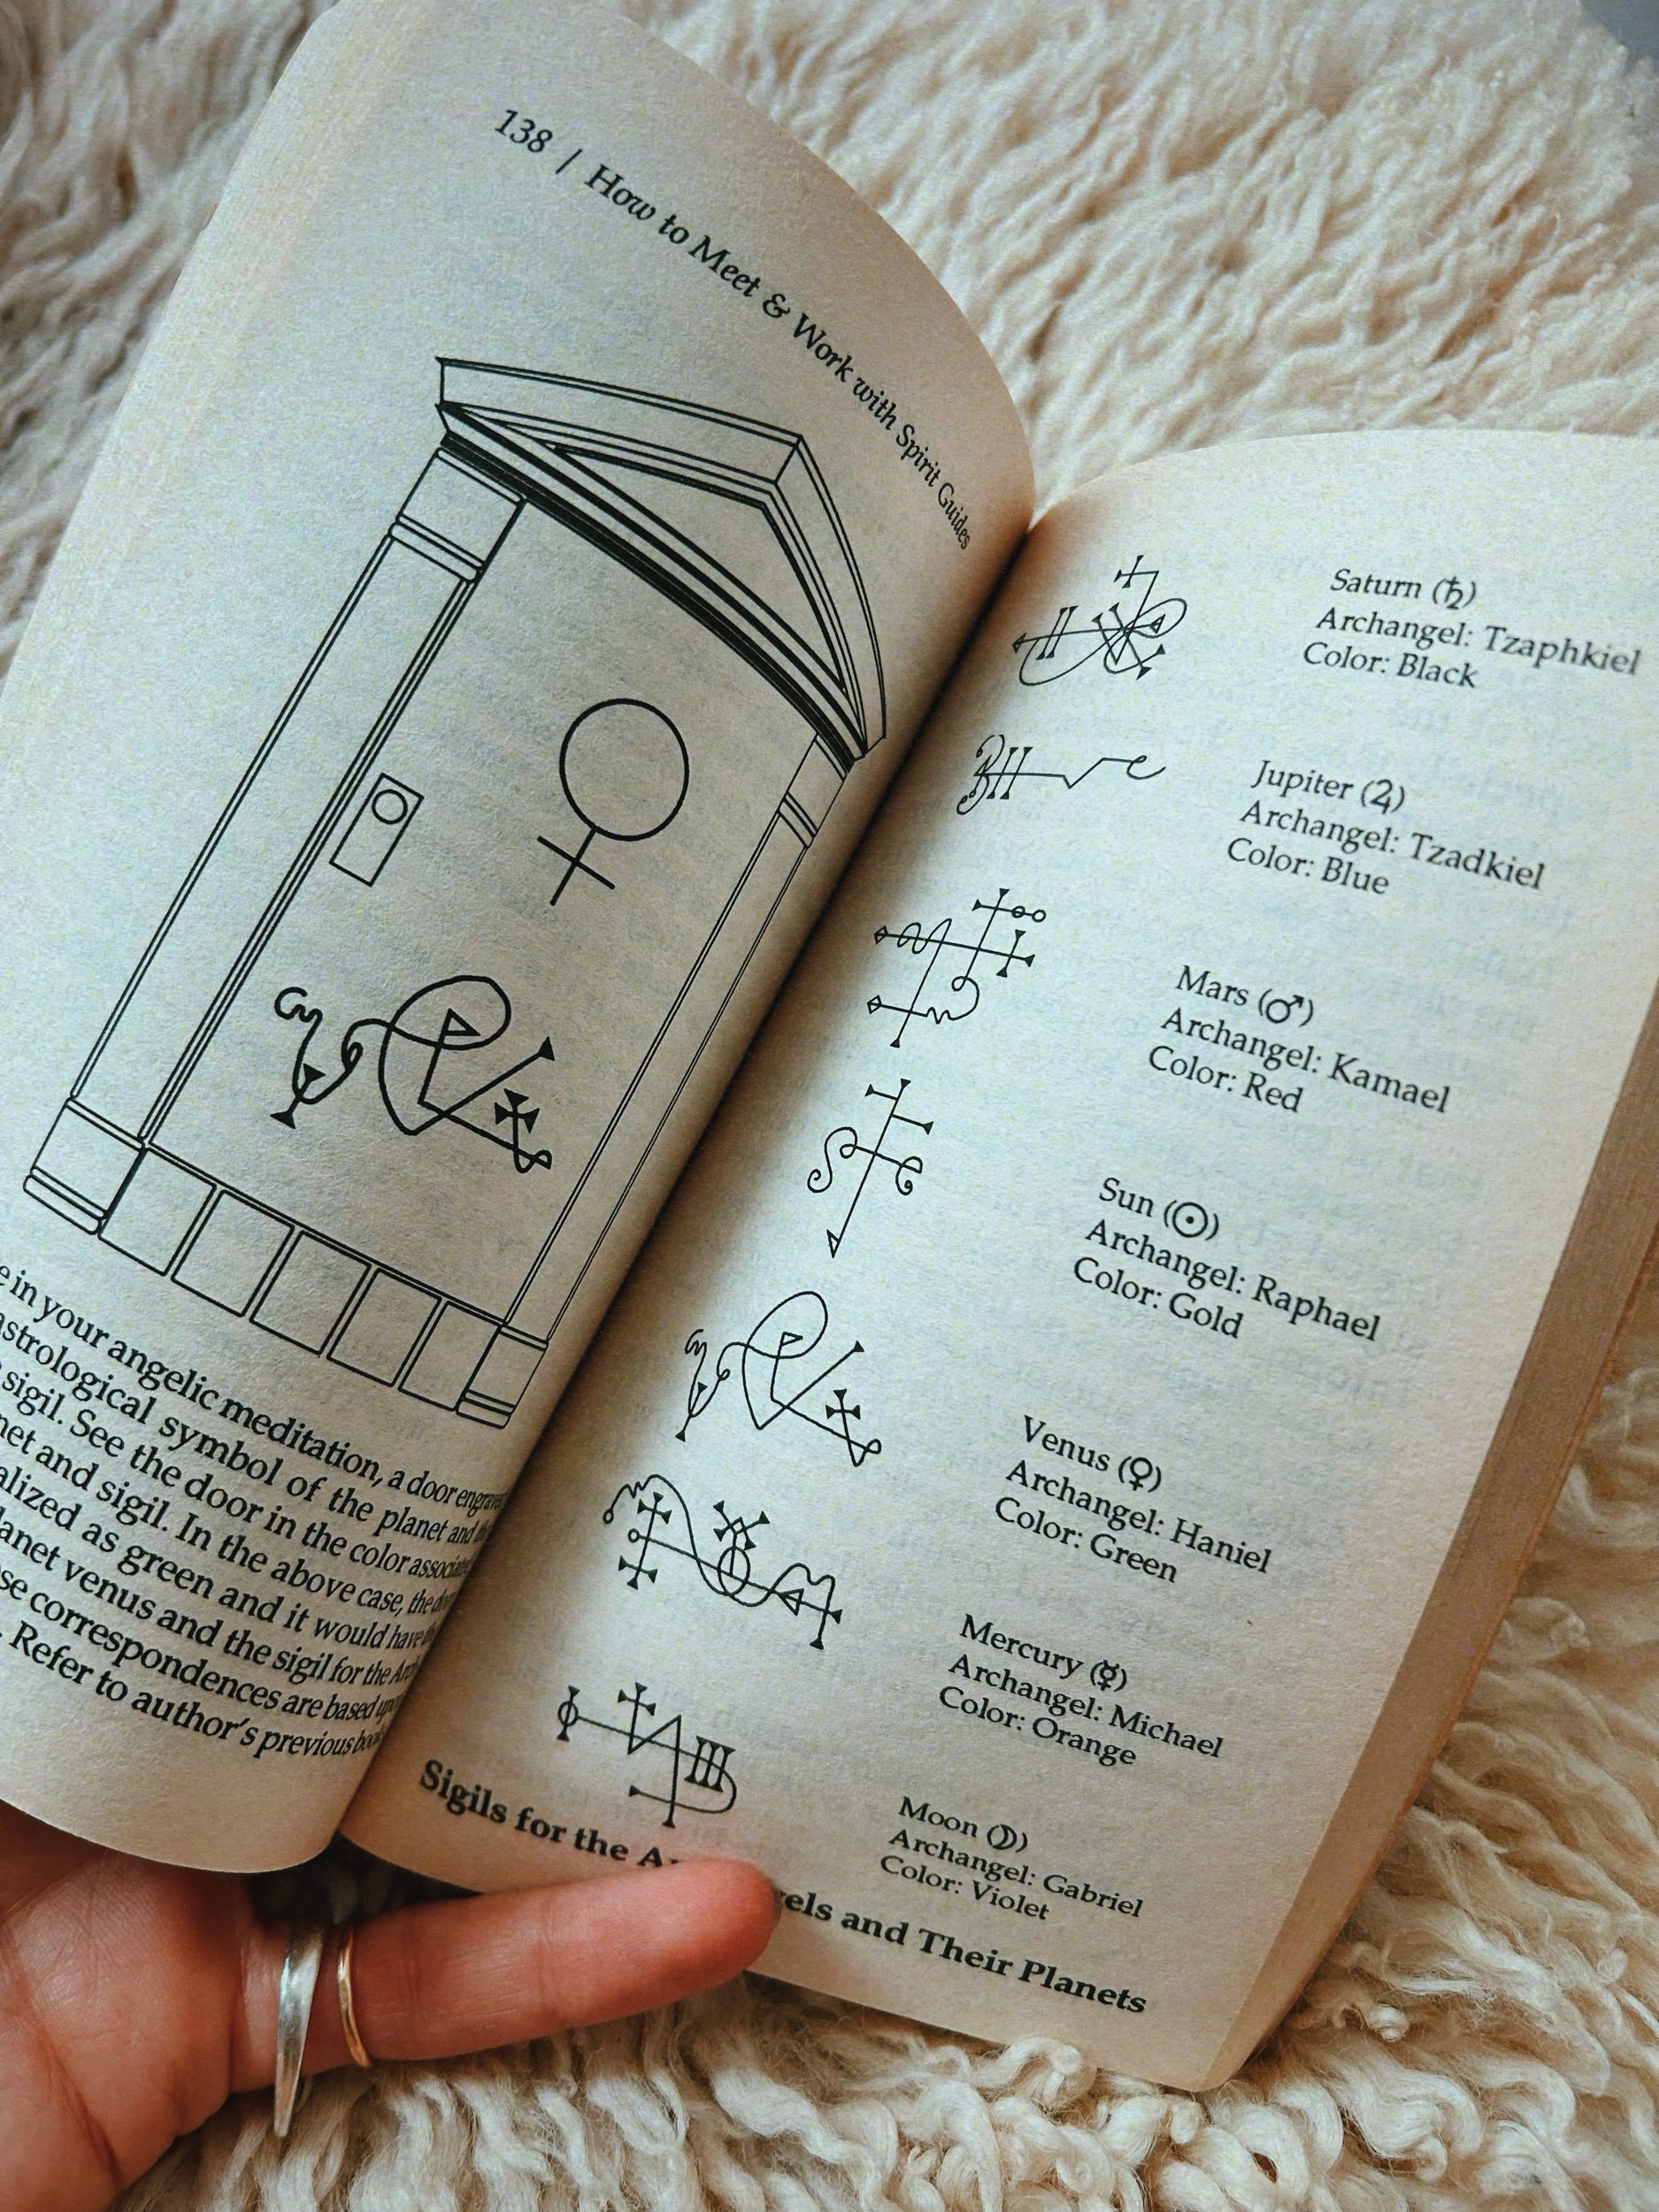 138 | How to Meet & Work with Spirit Guides
in your angelic meditation, a door
astrological symbol of the planet and
sigil. See the door in the color
and sigil. In the above case, the
as green and it would have
venus and the sigil for the
correspondences are based
Refer to author's previous
Saturn (♄)
Archangel: Tzaphkiel
Color: Black
Jupiter (♃)
Archangel: Tzadkiel
Color: Blue
Mars (♂)
Archangel: Kamael
Color: Red
Sun (☉)
Archangel: Raphael
Color: Gold
Venus (♀)
Archangel: Haniel
Color: Green
Mercury (☿)
Archangel: Michael
Color: Orange
Moon (☽)
Archangel: Gabriel
Color: Violet
Sigils for the and Their Planets